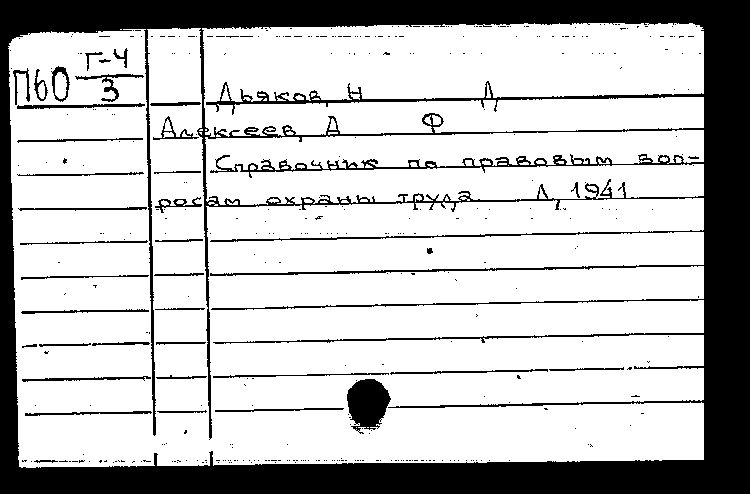 П60 Г-4
3
Дьяков, Н Д
Алексеев, Д Ф
Справочник по правовым воп-
росам охраны труда Л, 1941